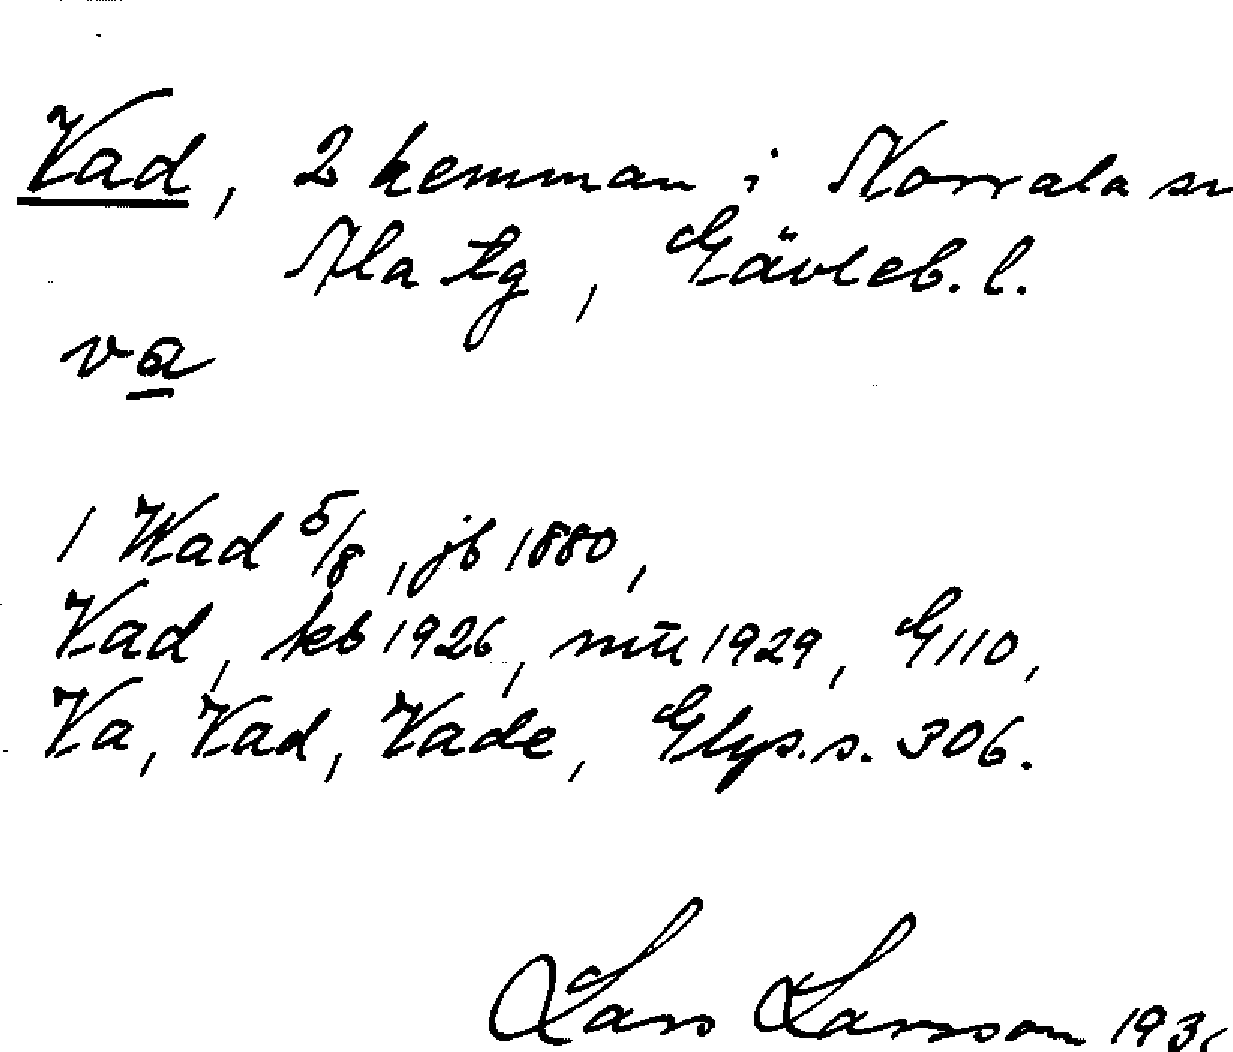 Vad, 2 hemman i Norrala sn
Ala tg, Gävleb. l.
va
1 Wad 5/8, jb 1880,
Vad, keb 1926, mtl 1929, G110,
Va, Vad, Vade, Glys. s. 306.
Lars Larsson